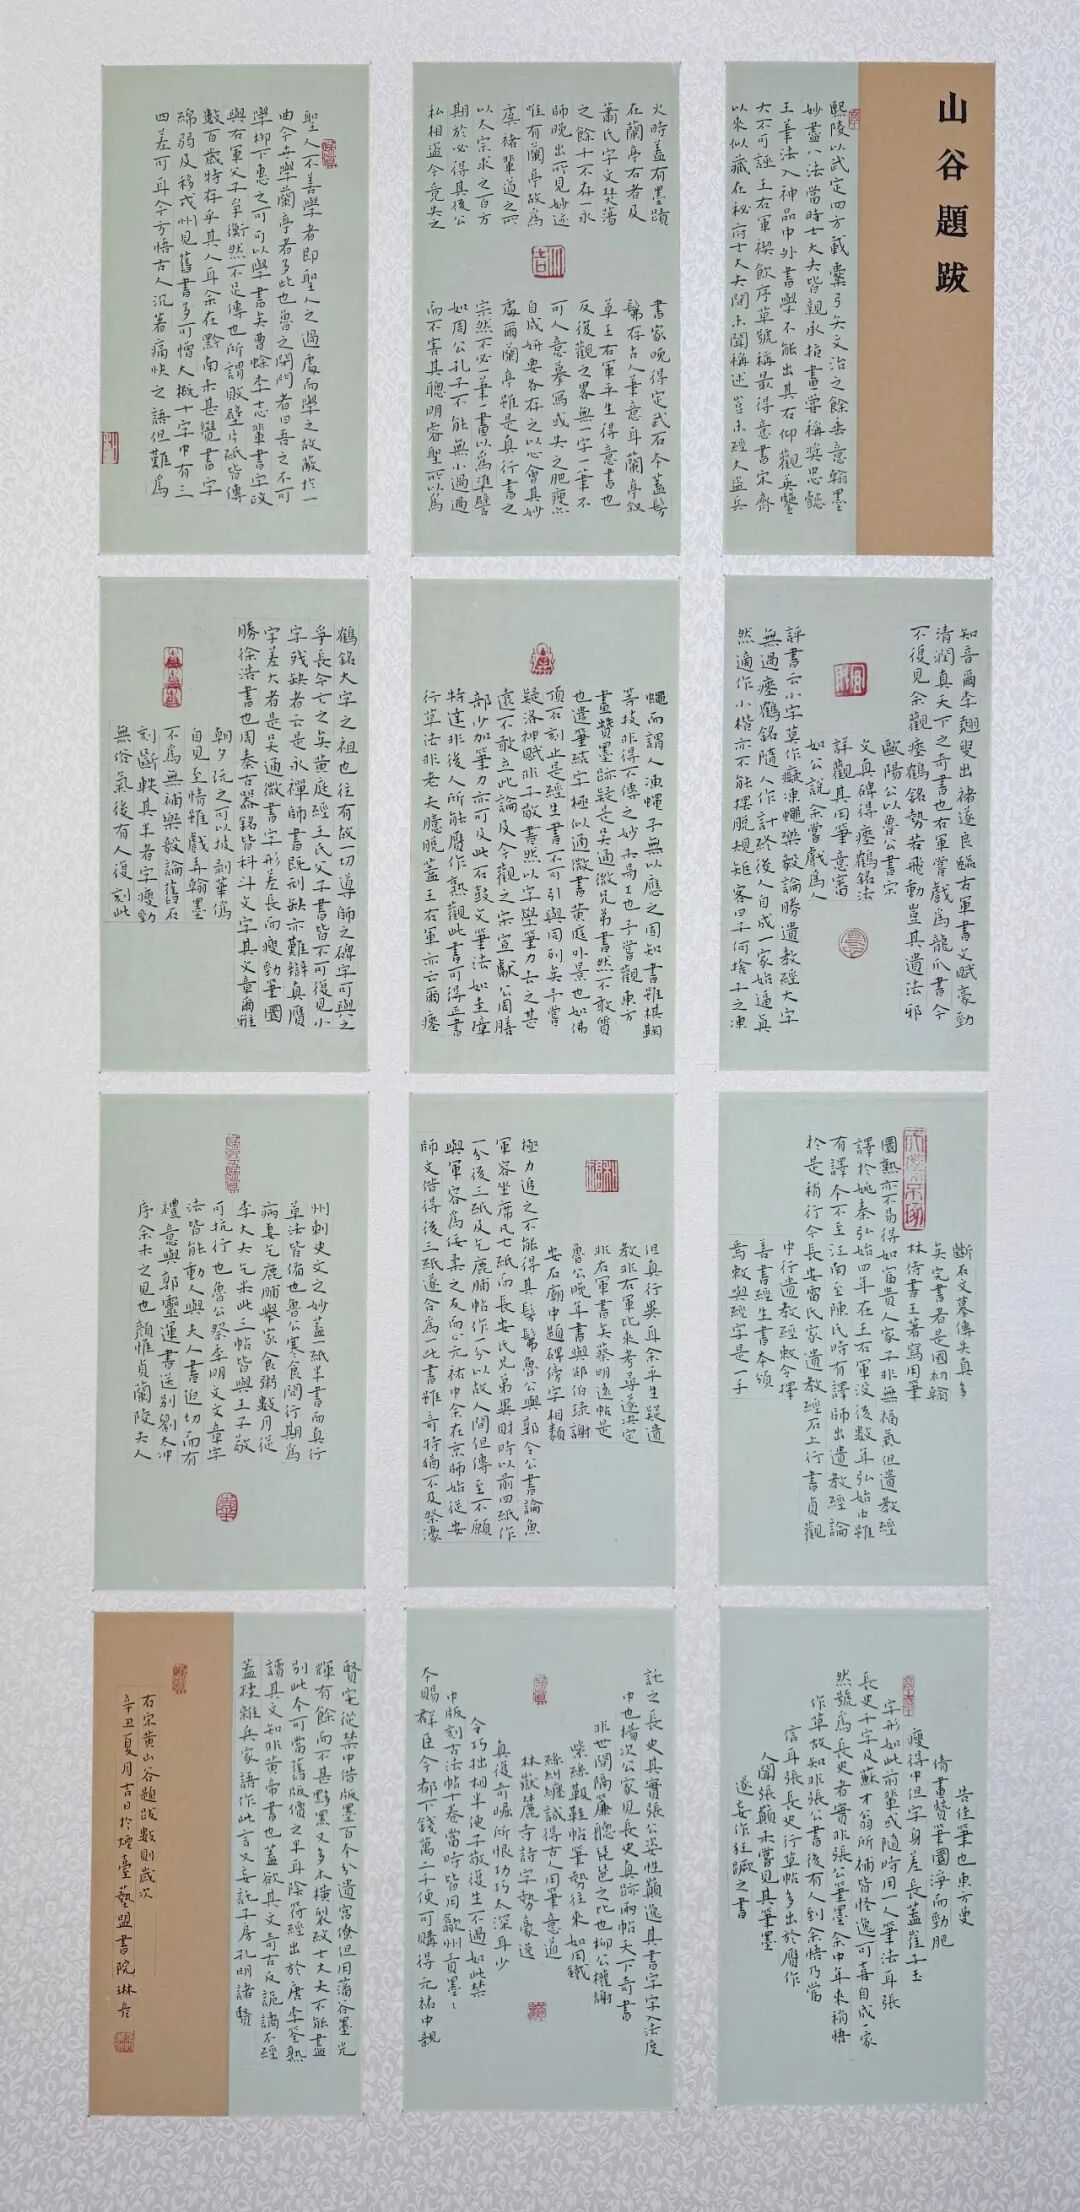 山谷題跋
熙陵以武定四方載櫜弓矢文治之餘垂意翰墨
妙盡八法當時士大夫皆親承指畫嘗稱獎忠懿
王筆法入神品中外書學不能出其右仰觀英鑒
大不可誣王右軍禊飲序草號稱最得意書宋齊
以來似藏在秘府士大夫間未聞稱述豈未經大盜兵
火時蓋有墨蹟
在蘭亭右者及
蕭氏宇文焚蕩
之餘十不存一永
師晚出所見妙迹
唯有蘭亭故爲
虞褚輩道之所
以太宗求之百方
期於必得其後公
私相盜今竟失之
書家晚得定武石本蓋髣
髴存古人筆意耳蘭亭敘
草王右軍平生得意書也
反復觀之畧無一字一筆不
可人意摹寫或失之肥瘦亦
自成妍要各存之以心會其妙
處爾蘭亭雖是真行書之
宗然不必一筆一畫以爲準譬
如周公孔子不能無小過過
而不害其聰明睿聖所以爲
聖人不善學者即聖人之過處而學之故蔽於一
曲今世學蘭亭者多此也魯之閉門者曰吾之不可
學柳下惠之可可以學書矣曹蜍李志輩書字政
與右軍父子爭衡然不足傳也所謂敗壁片紙皆傳
數百歲特存乎其人耳余在黔南未甚覺書字
綿弱及移戎州見舊書多可憎大概十字中有三
四差可耳今方悟古人沉著痛快之語但難爲
知音爾李翹叟出褚遂良臨右軍書文賦豪勁
清潤真天下之奇書也右軍嘗戲爲龍爪書今
不復見余觀瘞鶴銘勢若飛動豈其遺法邪
歐陽公以魯公書宋
文貞碑得瘞鶴銘法
詳觀其用筆意審
如公說余嘗戲爲人
評書云小字莫作癡凍蠅樂毅論勝遺教經大字
無過瘞鶴銘隨人作計終後人自成一家始逼真
然適作小楷亦不能擺脫規矩客曰子何捨子之凍
蠅而謂人凍蠅予無以應之固知書雖棋鞠
等技非得不傳之妙未易工也予嘗觀東方
畫贊墨跡疑是吴通微兄弟書然不敢質
也遺筆結字極似通微書黄庭外景也如佛
頂石刻止是經生書不可引與同列矣予嘗
疑洛神賦非子敬書然以字學筆力去之甚
遠不敢立此論及今觀之宋宣獻公周膳
部少加筆力亦可及此石鼓文筆法如圭璋
特達非後人所能贗作熟觀此書可得正書
行草法非老夫臆脫蓋王右軍亦云爾瘞
鶴銘大字之祖也往有故一切導師之碑字可與之
爭長今亡之矣黄庭經王氏父子書皆不可復見小
字殘缺者云是永禪師書既刓缺亦難辯真贗
字差大者是吴通微書字形差長而瘦勁筆圜
勝徐浩書也周秦古器銘皆科斗文字其文章爾雅
朝夕玩之可以披剥華僞
自見至情雖戲弄翰墨
不爲無補樂毅論舊石
刻斷軼其半者字瘦勁
無俗氣後有人復刻此
斷石文摹傳失真多
矣完書者是國初翰
林侍書王著寫用筆
圜熟亦不易得如富貴人家子非無福氣但遺教經
譯於姚秦弘始四年在王右軍没後數年弘始中雖
有譯本不至江南至陳氏時有譯師出遺教經論
於是稍行今長安雷氏家遺教經石上行書貞觀
中行遺教經敕令擇
善書經生書本頒
焉敕與經字是一手
但真行異耳余平生疑遺
教非右軍比來考尋遂决定
非右軍書矣蔡明遠帖是
魯公晚年書與邵伯埭謝
安石廟中題碑傍字相類
極力追之不能得其髣髴魯公與郭令公書論魚
軍容坐席凡七紙而長安氏兄弟異財時以前四紙作
一分後三紙及乞鹿脯帖作一分以故人間但傳至不願
與軍容爲佞柔之友而止元祐中余在京師始從安
師文借得後三紙遂合爲一此書雖奇特猶不及祭濠
州刺史文之妙蓋一紙半書而真行
草法皆備也魯公寒食問行期爲
病妻乞鹿脯舉家食粥數月從
李大夫乞米此三帖皆與王子敬
可抗行也魯公祭季明文文章字
法皆能動人與夫人書迫切而有
禮意與郭靈運書送别劉太冲
序余未之見也顏惟貞蘭陵夫人
告佳筆也東方曼
倩畫贊筆圜淨而勁肥
瘦得中但字身差長蓋崔子玉
字形如此前輩或隨時用一人筆法耳張
長史千字及蘇才翁所補皆怪逸可喜自成一家
然號爲長史者實非張公筆墨余中年來稍悟
作草故知非張公書後有人到余悟乃當
信耳張長史行草帖多出於贗作
人聞張顛未嘗見其筆墨
遂妄作狂蹶之書
託之長史其實張公姿性顛逸其書字字入法度
中也楊次公家見長史真跡兩帖天下奇書
非世間隔簾聽琵琶之比也柳公權謝
紫絲靸鞋帖筆勢往來如用鐵
絲糾纏誠得古人用筆意道
林嶽麓寺詩字勢豪逸
真復奇崛所恨功巧太深耳少
令巧拙相半使子敬復生不過如此禁
中版刻古法帖十卷當時皆用歙州貢墨墨
本賜群臣今都下錢萬二千便可購得元祐中親
賢宅從禁中借版墨百本分遺宫僚但用潘谷墨光
輝有餘而不甚黟黑又多木橫裂紋士大夫不能盡
别此本可當舊版價之半耳陰符經出於唐李筌熟
讀其文知非黄帝書也蓋欲其文奇古反詭譎不經
蓋糅雜兵家語作此言又妄託子房孔明諸賢
右宋黄山谷題跋數則歲次
辛丑夏月吉日於煙臺藝盟書院琳彦